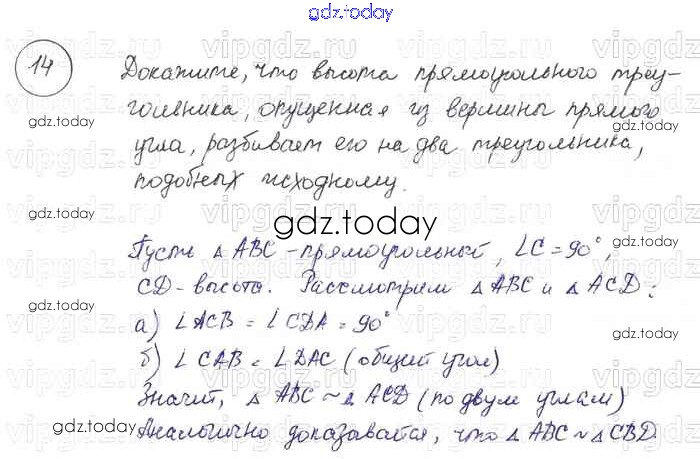 gdz.today
14
Докажите, что высота прямоугольного треу-
гольника, опущенная из вершины прямого
угла, разбивает его на два треугольника,
подобных исходному.
gdz.today
Пусть △ABC - прямоугольный, ∠C = 90°,
CD - высота. Рассмотрим △ABC и △ACD:
а) ∠ACB = ∠CDA = 90°
б) ∠CAB = ∠DAC (общий угол)
Значит, △ABC ~ △ACD (по двум углам)
Аналогично доказывается, что △ABC ~ △CBD.